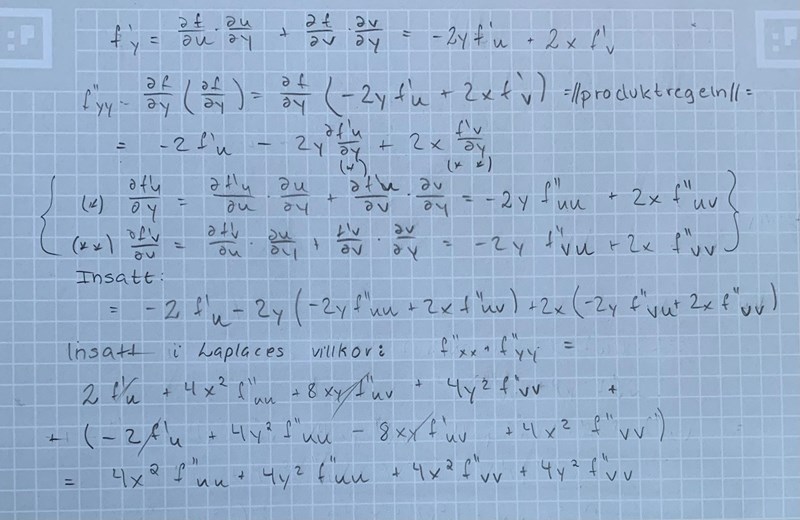 f'y = ∂f/∂u · ∂u/∂y + ∂f/∂v · ∂v/∂y = -2y f'u + 2x f'v
f''yy - ∂f/∂y (∂f/∂y) = ∂f/∂y (-2y f'u + 2x f'v) = //produktregeln// =
= -2 f'u - 2y ∂f'u/∂y (*) + 2x f'v/∂y (* *)
(*) ∂f'u/∂y = ∂f'u/∂u · ∂u/∂y + ∂f'u/∂v · ∂v/∂y = -2y f''uu + 2x f''uv
(**) ∂f'v/∂v = ∂f'v/∂u · ∂u/∂y + f'v/∂v · ∂v/∂y = -2y f''vu + 2x f''vv
Insatt:
= -2 f'u - 2y (-2y f''uu + 2x f''uv) + 2x (-2y f''vu + 2x f''vv)
Insatt i Laplaces villkor: f''xx + f''yy =
2 f'u + 4x² f''uu + 8xy f''uv + 4y² f'vv +
+ (-2 f'u + 4y² f''uu - 8xy f'uv + 4x² f''vv)
= 4x² f''uu + 4y² f''uu + 4x² f''vv + 4y² f''vv